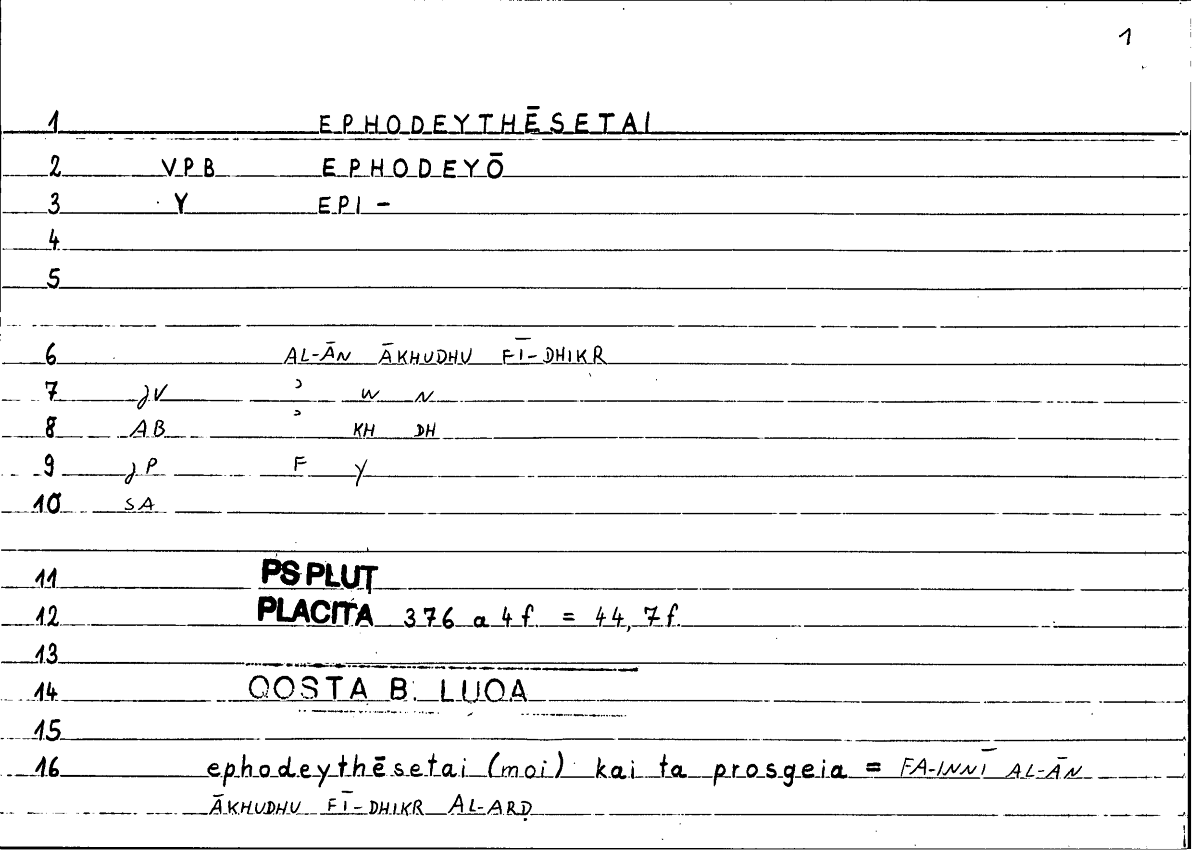 1
1 EPHODEYTHĒSETAI
2 VPB EPHODEYŌ
3 Y EPI -
4
5
6 AL-ĀN ĀKHUDHU FĪ-DHIKR
7 jV ʾ W N
8 AB ʾ KH DH
9 jP F Y
10 SA
11 PS PLUT
12 PLACITA 376 a 4 f. = 44, 7 f.
13
14 QOSTA B. LUQA
15
16 ephodeythēsetai (moi) kai ta prosgeia = FA-INNĪ AL-ĀN
ĀKHUDHU FĪ-DHIKR AL-ARḌ